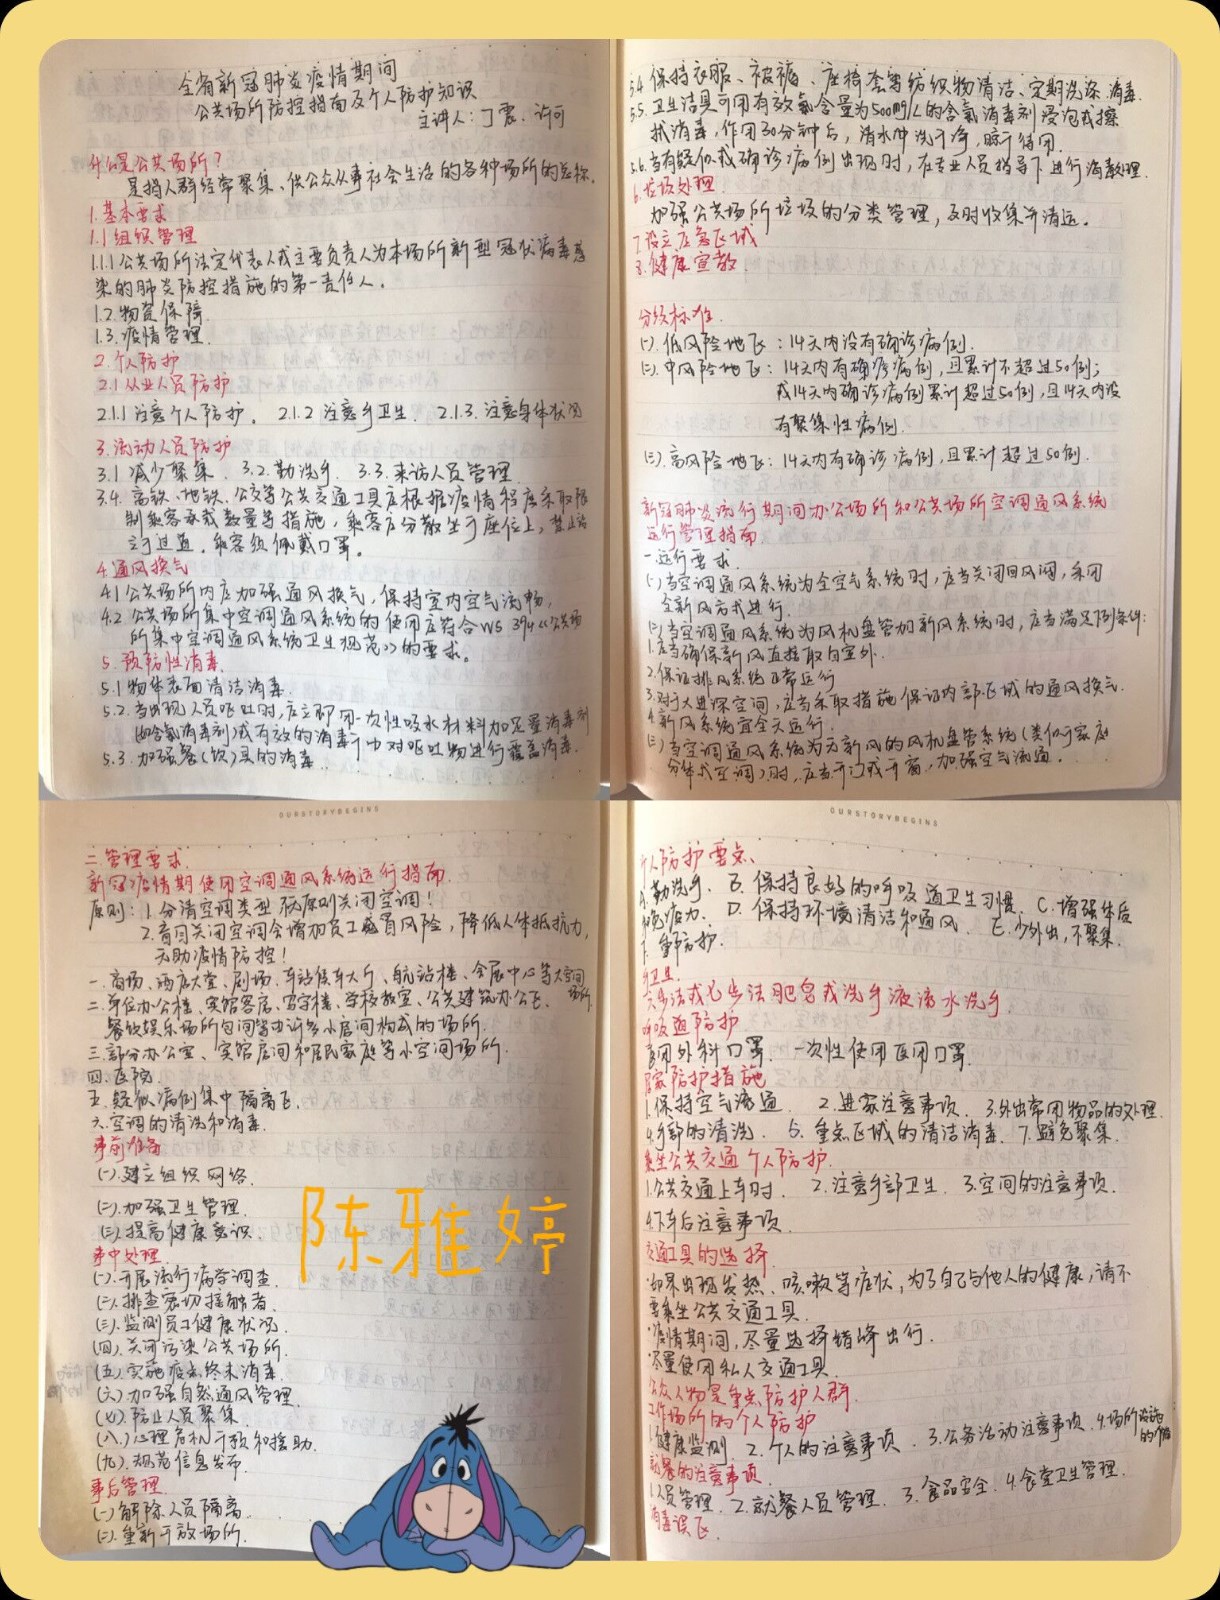 全省新冠肺炎疫情期间
公共场所防控指南及个人防护知识
主讲人：丁震、许可
什么是公共场所？
是指人群经常聚集、供公众从事社会生活的各种场所的总称.
1.基本要求
1.1组织管理
1.1.1公共场所法定代表人或主要负责人为本场所新型冠状病毒感
染的肺炎防控措施的第一责任人.
1.2.物资保障
1.3.疫情管理
2.个人防护
2.1从业人员防护
2.1.1注意个人防护. 2.1.2注意手卫生. 2.1.3.注意身体状况
3.流动人员防护
3.1减少聚集. 3.2.勤洗手. 3.3.来访人员管理
3.4.高铁、地铁、公交等公共交通工具应根据疫情程度采取限
制乘客承载数量等措施，乘客应分散坐于座位上，禁止站
立于过道. 乘客须佩戴口罩。
4.通风换气
4.1公共场所内应加强通风换气，保持室内空气流畅.
4.2公共场所集中空调通风系统的使用应符合WS 394《公共场
所集中空调通风系统卫生规范》的要求。
5.预防性消毒.
5.1物体表面清洁消毒.
5.2.当出现人员呕吐时，应立即用一次性吸水材料加足量消毒剂
(如含氯消毒剂)或有效的消毒干巾对呕吐物进行覆盖消毒.
5.3.加强餐(饮)具的消毒.
5.4.保持衣服、被褥、座椅套等纺织物清洁、定期洗涤、消毒.
5.5.卫生洁具可用有效氯含量为500mg/L的含氯消毒剂浸泡或擦
拭消毒，作用30分钟后，清水冲洗干净，晾干待用.
5.6.当有疑似或确诊病例出现时，在专业人员指导下进行消毒处理
6.垃圾处理
加强公共场所垃圾的分类管理，及时收集并清运。
7.设立应急区域
8.健康宣教.
分级标准.
(一).低风险地区：14天内没有确诊病例.
(二).中风险地区：14天内有确诊病例，且累计不超过50例；
或14天内确诊病例累计超过50例，且14天内没
有聚集性病例
(三).高风险地区：14天内有确诊病例，且累计超过50例.
新冠肺炎流行期间办公场所和公共场所空调通风系统
运行管理指南
一.运行要求
(一)当空调通风系统为全空气系统时，应当关闭回风阀，采用
全新风方式进行.
(二)当空调通风系统为风机盘管加新风系统时，应当满足下列条件：
1.应当确保新风直接取自室外.
2.保证排风系统正常运行
3.对于大进深空间，应当采取措施保证内部区域的通风换气.
4.新风系统宜全天运行.
(三)当空调通风系统为无新风的风机盘管系统(类似于家庭
分体式空调)时，应当开门或开窗，加强空气流通.
OURSTORYBEGINS
二.管理要求
新冠疫情期使用空调通风系统运行指南
原则：1.分清空调类型
关闭空调！
2.盲目关闭空调会增加员工感冒风险，降低人体抵抗力，
无助疫情防控！
一.商场、酒店大堂、剧场、车站候车大厅、航站楼、会展中心等大空间
场所
二.单位办公楼、宾馆客房、写字楼、学校教室、公共建筑办公区、
餐饮娱乐场所包间等由许多小房间构成的场所.
三.部分办公室、宾馆房间和居民家庭等小空间场所.
四.医院
五.疑似病例集中隔离区.
六.空调的清洗和消毒.
事前准备
(一).建立组织网络.
(二).加强卫生管理.
(三).提高健康意识.
事中处理
(一).开展流行病学调查.
(二).排查密切接触者.
(三).监测员工健康状况.
(四).关闭污染公共场所.
(五).实施疫点终末消毒.
(六).加强自然通风管理
(七).防止人员聚集.
(八).心理危机干预和援助.
(九).规范信息发布.
事后管理
(一)解除人员隔离.
(二).重新开放场所.
陈雅婷
OURSTORYBEGINS
个人防护要点、
A.勤洗手. B.保持良好的呼吸道卫生习惯. C.增强体后
免疫力. D.保持环境清洁和通风. E.少外出，不聚集.
重防护.
手卫生.
六步法或七步法肥皂或洗手液流水洗手
呼吸道防护
医用外科口罩. 一次性使用医用口罩.
居家防护措施
1.保持空气流通. 2.进家注意事项. 3.外出常用物品的处理.
4.手部的清洗. 6.重点区域的清洁消毒. 7.避免聚集.
乘坐公共交通个人防护.
1.公共交通上车时. 2.注意手部卫生. 3.空间的注意事项.
4.下车后注意事项
交通工具的选择.
如果出现发热、咳嗽等症状，为了自己与他人的健康，请不
要乘坐公共交通工具.
疫情期间，尽量选择错峰出行.
尽量使用私人交通工具.
公众人物是重点防护人群
工作场所的个人防护
1.健康监测. 2.个人的注意事项. 3.公务活动注意事项. 4.场所设施
就餐的注意事项.
1.人员管理. 2.就餐人员管理. 3.食品安全. 4.食堂卫生管理.
消毒误区.